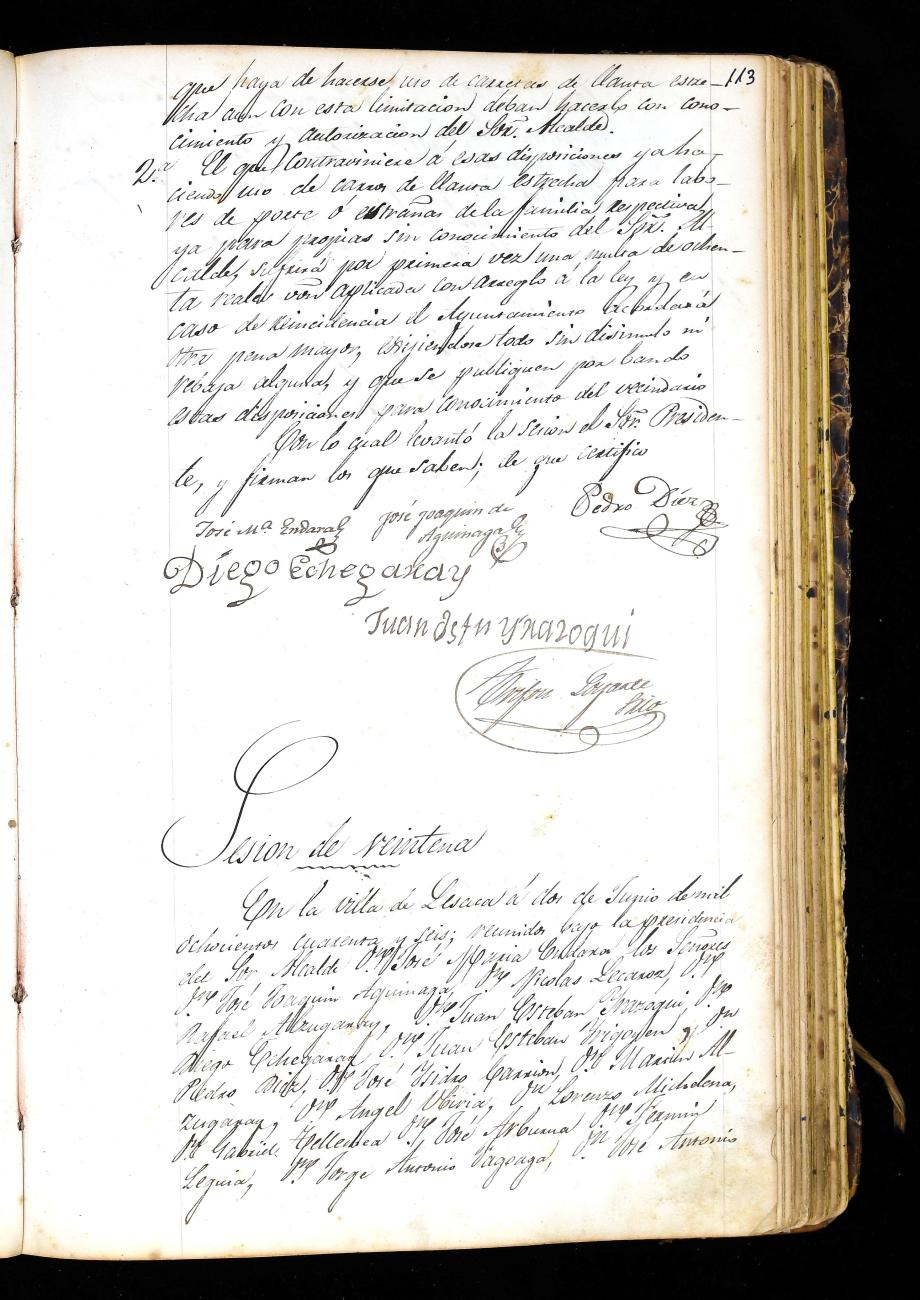 113
que haya de hacerse uso de carretas de llanta estre-
cha aun con esta limitacion deban hacerlo con cono-
cimiento y autorizacion del Sor. Alcalde.
2.a El que contraviniere á esas disposiciones ya ha-
ciendo uso de carros de llanta estrecha para labo-
res de porte ó estrañas de la familia respectiva,
ya para propias sin conocimiento del Sor. Al-
calde, sufrirá por primera vez una multa de ochen-
ta reales von aplicada con arreglo á la ley y en
caso de reincidencia el Ayuntamiento acordará
otra pena mayor, exijiendose todo sin disimulo ni
rebaja alguna, y que se publiquen por bando
estas disposiciones para conocimiento del vecindario
Con lo cual levantó la sesion el Sor. Presiden-
te, y firman los que saben; de que certifico
José Ma. Endara
José Joaquin de
Aguinaga
Pedro Diez
Diego Echegaray
Juan Estn Yrazoqui
Sesion de veintena
En la villa de Lesaca á dos de Junio de mil
ochocientos cuarenta y seis; reunidos bajo la presidencia
del Sor Alcalde Dn. José Maria Endara los Señores
Dn. José Joaquin Aguinaga, Dn. Nicolas Lecaroz, Dn.
Rafael Alzugaray, Dn. Juan Esteban Yrazoqui, Dn.
Diego Echegaray Dn. Juan Esteban Yrigoyen, Dn
Pedro Diez, Dn. José Ysidro Carrion, Dn. Martin Al-
zugaray, Dn. Angel Ubiria, Dn Lorenzo Michelena,
Dn. Gabriel Tellechea Dn. José Arburua Dn. Fermin
Leguia, Dn. Jorge Antonio Tagoaga, Dn. José Antonio